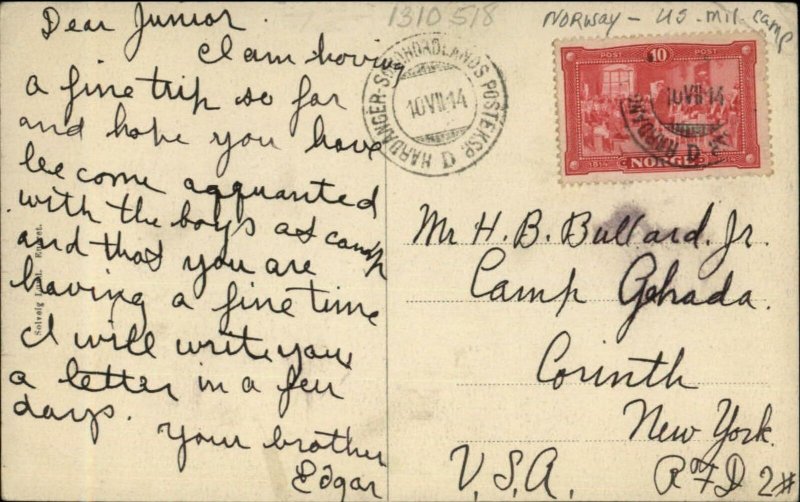 1310518
NORWAY - US. mil. camp
Dear Junior.
I am having
a fine trip so far
and hope you have
become acquanted
with the boys at camp
and that you are
having a fine time
I will write you
a letter in a few
days.
Your brother
Edgar
HARDANGER-SØ POSTEKSP. D
10 VII 14
POST 10 POST
NORGE
1814
10 VII 14
Mr H. B. Bullard. Jr.
Camp Gahada.
Corinth
New York.
U.S.A. RFD 2#
Solveig